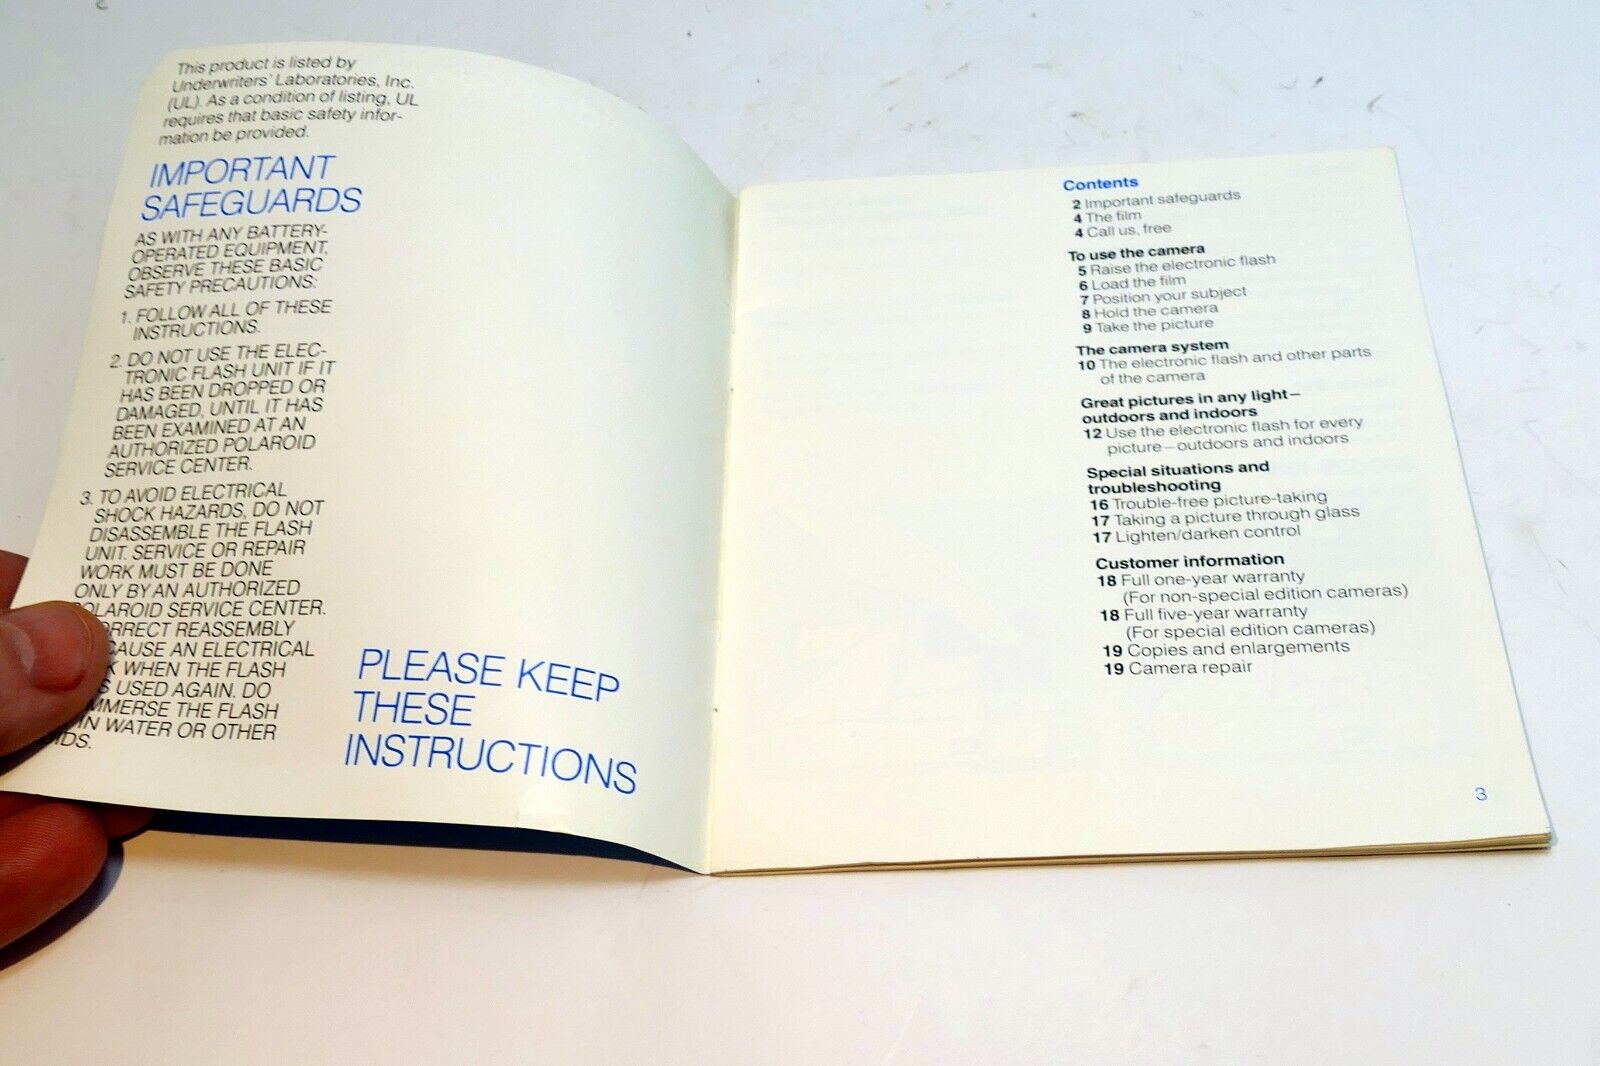 This product is listed by
Underwriters' Laboratories, Inc.
(UL). As a condition of listing, UL
requires that basic safety infor-
mation be provided.
IMPORTANT
SAFEGUARDS
AS WITH ANY BATTERY-
OPERATED EQUIPMENT,
OBSERVE THESE BASIC
SAFETY PRECAUTIONS:
1. FOLLOW ALL OF THESE
INSTRUCTIONS.
2. DO NOT USE THE ELEC-
TRONIC FLASH UNIT IF IT
HAS BEEN DROPPED OR
DAMAGED, UNTIL IT HAS
BEEN EXAMINED AT AN
AUTHORIZED POLAROID
SERVICE CENTER.
3. TO AVOID ELECTRICAL
SHOCK HAZARDS, DO NOT
DISASSEMBLE THE FLASH
UNIT. SERVICE OR REPAIR
WORK MUST BE DONE
ONLY BY AN AUTHORIZED
POLAROID SERVICE CENTER.
REASSEMBLY
CAUSE AN ELECTRICAL
WHEN THE FLASH
USED AGAIN. DO
IMMERSE THE FLASH
IN WATER OR OTHER
PLEASE KEEP
THESE
INSTRUCTIONS
Contents
2 Important safeguards
4 The film
4 Call us, free
To use the camera
5 Raise the electronic flash
6 Load the film
7 Position your subject
8 Hold the camera
9 Take the picture
The camera system
10 The electronic flash and other parts
of the camera
Great pictures in any light—
outdoors and indoors
12 Use the electronic flash for every
picture—outdoors and indoors
Special situations and
troubleshooting
16 Trouble-free picture-taking
17 Taking a picture through glass
17 Lighten/darken control
Customer information
18 Full one-year warranty
(For non-special edition cameras)
18 Full five-year warranty
(For special edition cameras)
19 Copies and enlargements
19 Camera repair
3